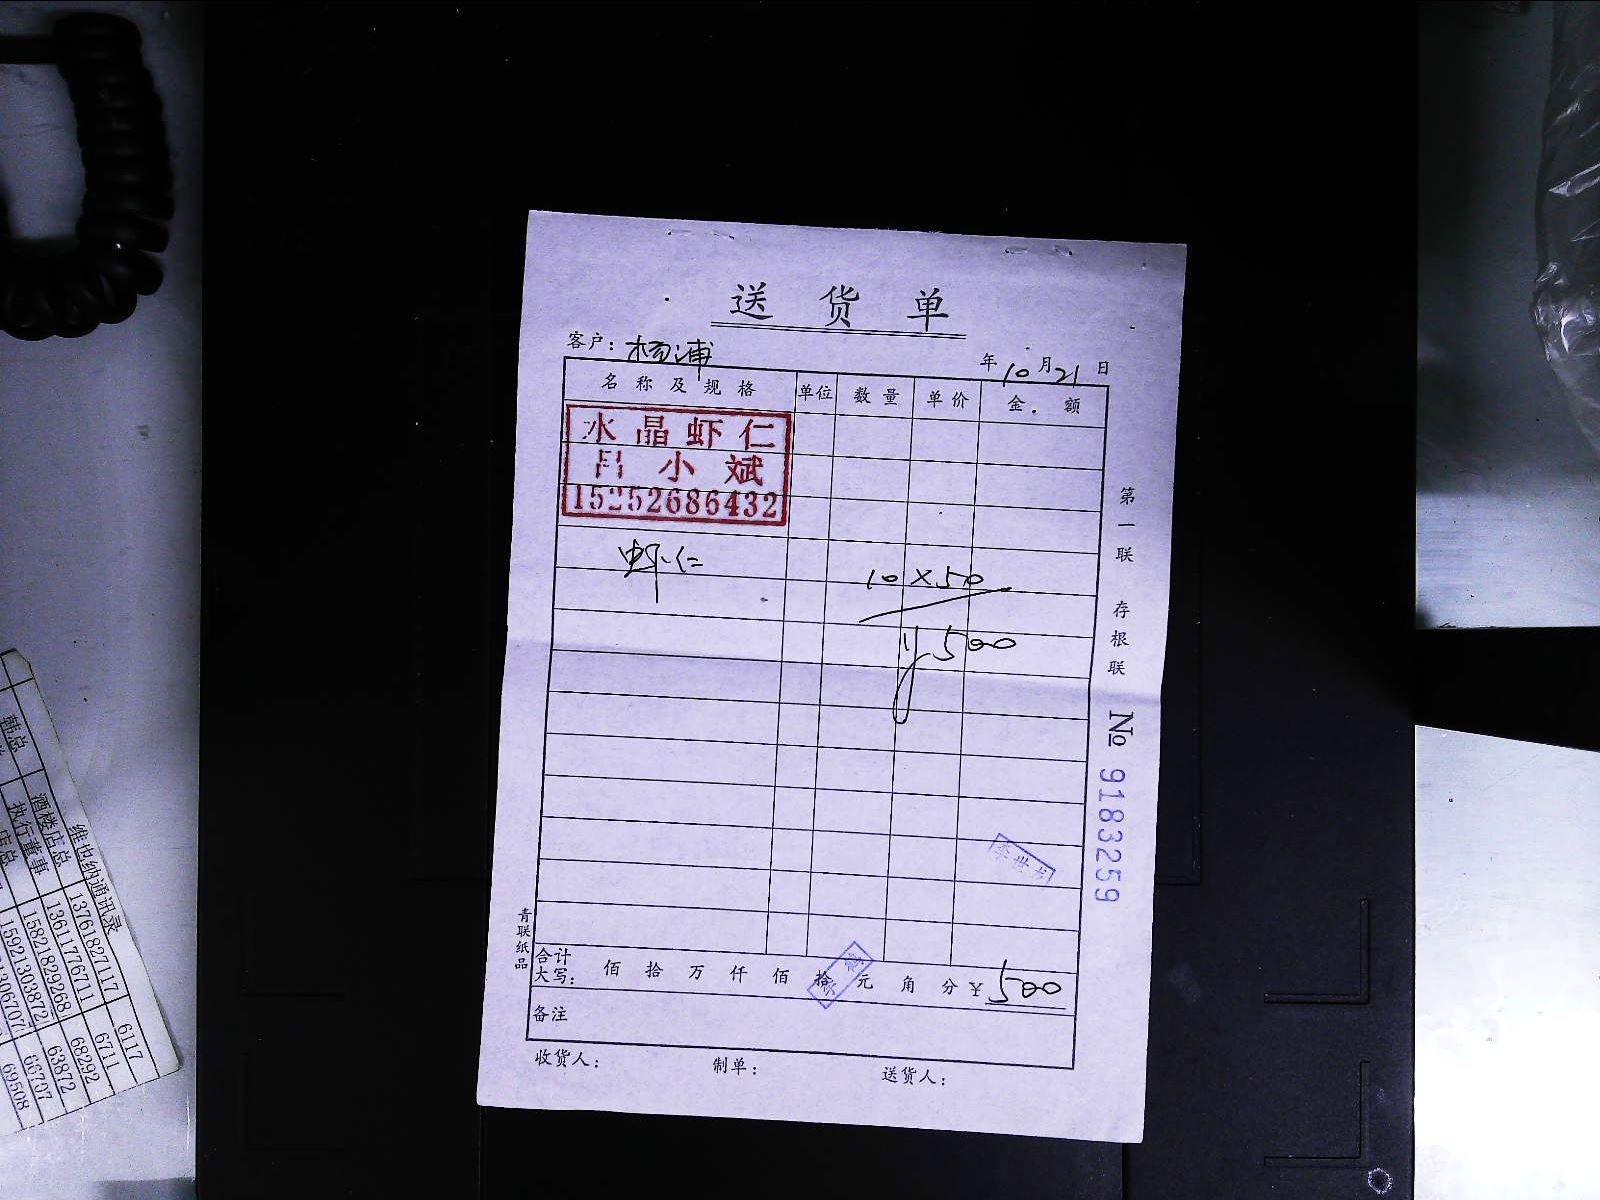 送货单
客户：杨浦
年10月21日
名称及规格 单位 数量 单价 金额
水晶虾仁
吕小斌
15252686432
虾仁 10×50
¥500
第一联 存根联
№ 9183259
青联纸品
合计大写： 佰 拾 万 仟 佰 拾 元 角 分 ¥ 500
备注
收货人： 制单： 送货人：
维也纳通讯录
韩总
酒楼店总 13761827117 6117
执行董事 13611776711 6711
店总 15821829268 68292
15921303872 63872
66707
69508